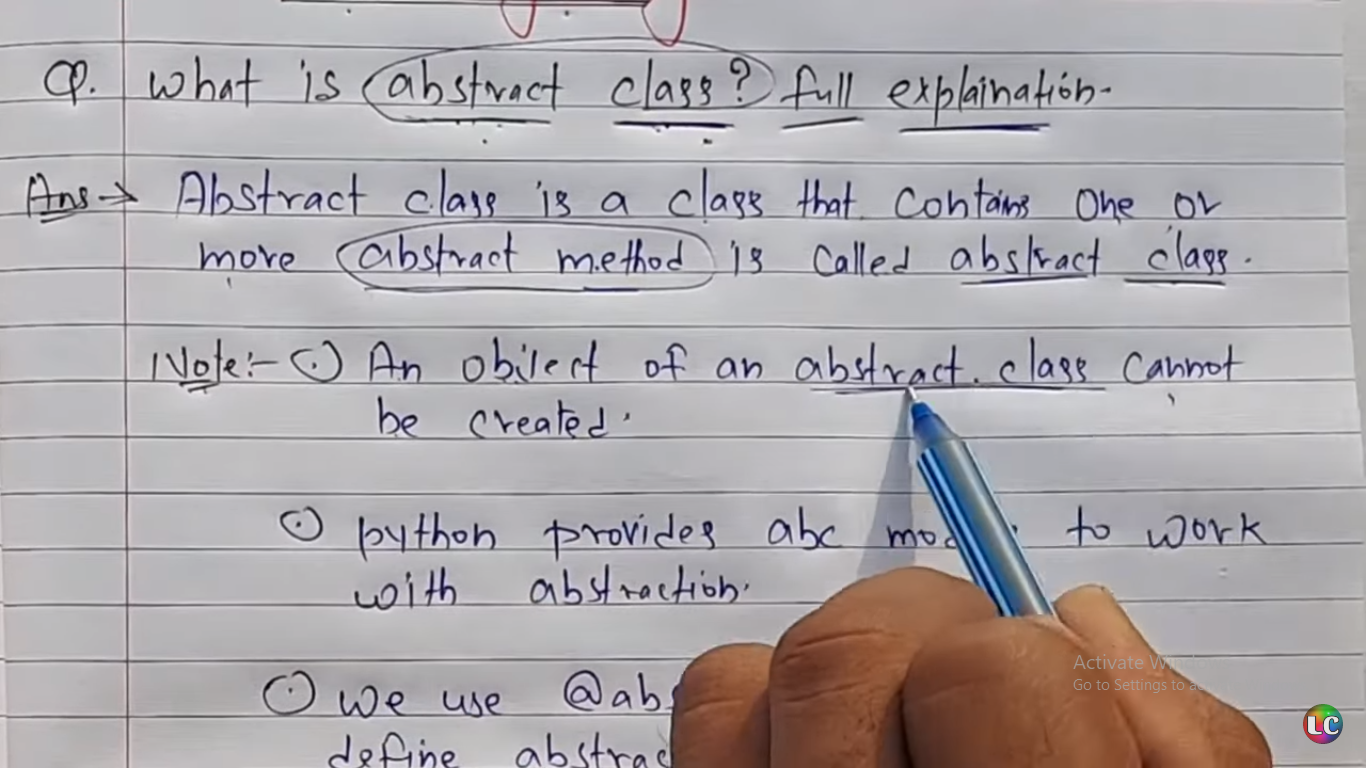 Q. What is abstract class? full explaination.
Ans → Abstract class is a class that contains one or
more abstract method is called abstract class.
Note:- ⊙ An object of an abstract class cannot
be created.
⊙ python provides abc to work
with abstraction.
⊙ we use
define
Activate
Go to Settings to
LC